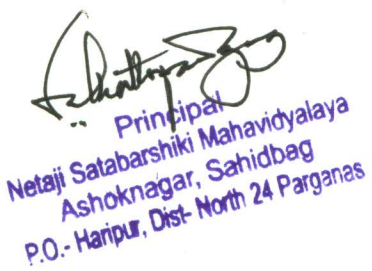 Principal
Netaji Satabarshiki Mahavidyalaya
Ashoknagar, Sahidbag
P.O.- Haripur, Dist- North 24 Parganas